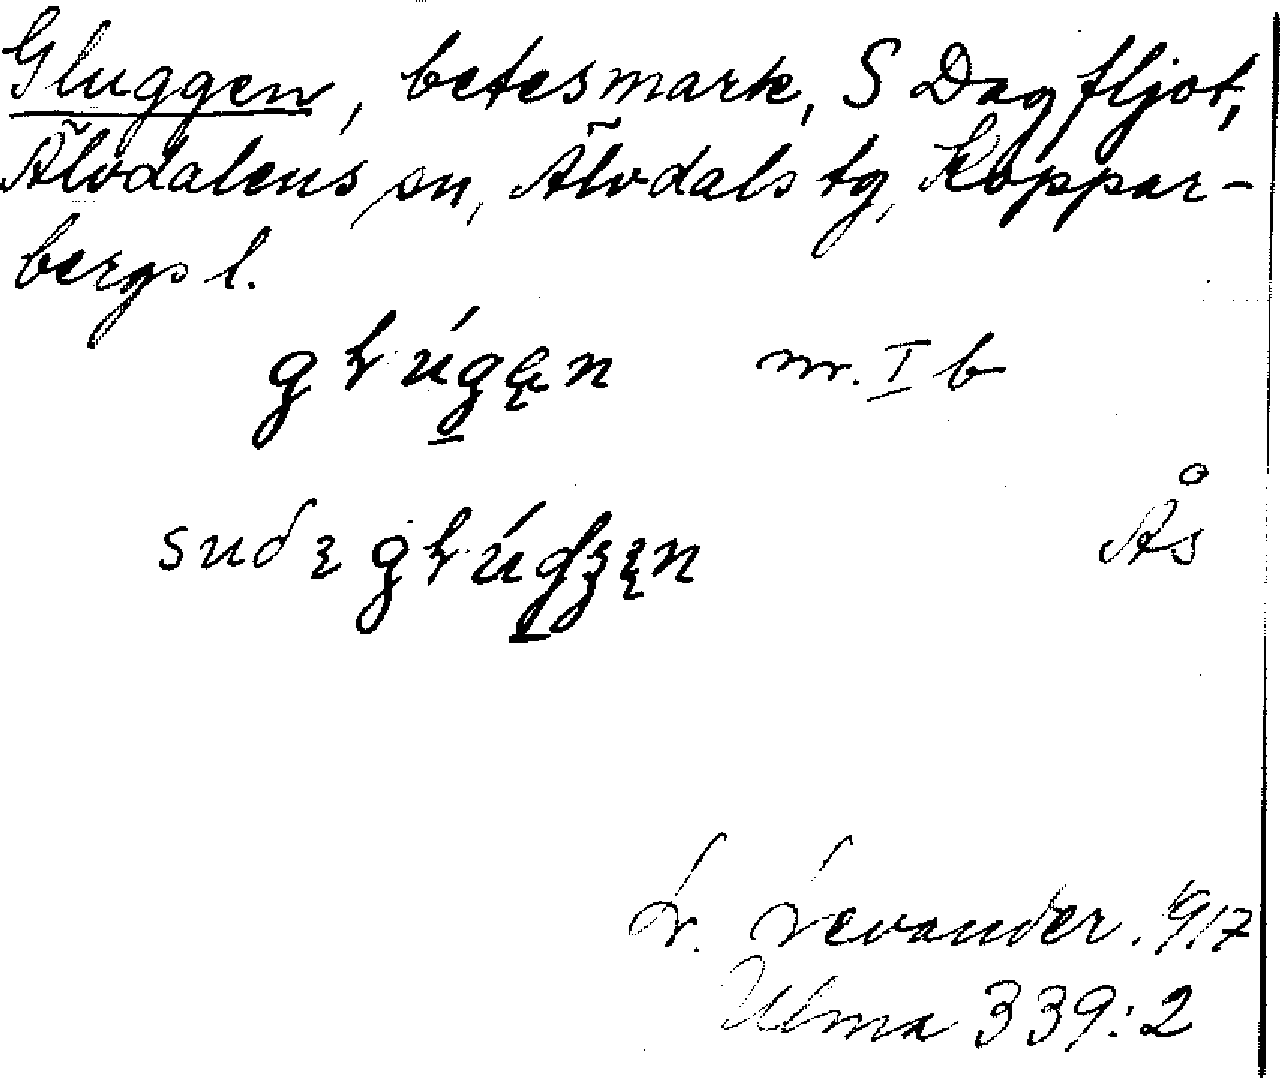 Gluggen, betesmark, S Dagfljot,
Älvdalens sn, Älvdals tg, Koppar-
bergs l.
m. I b
Ås
L. Levander. 1917
Ulma 339:2